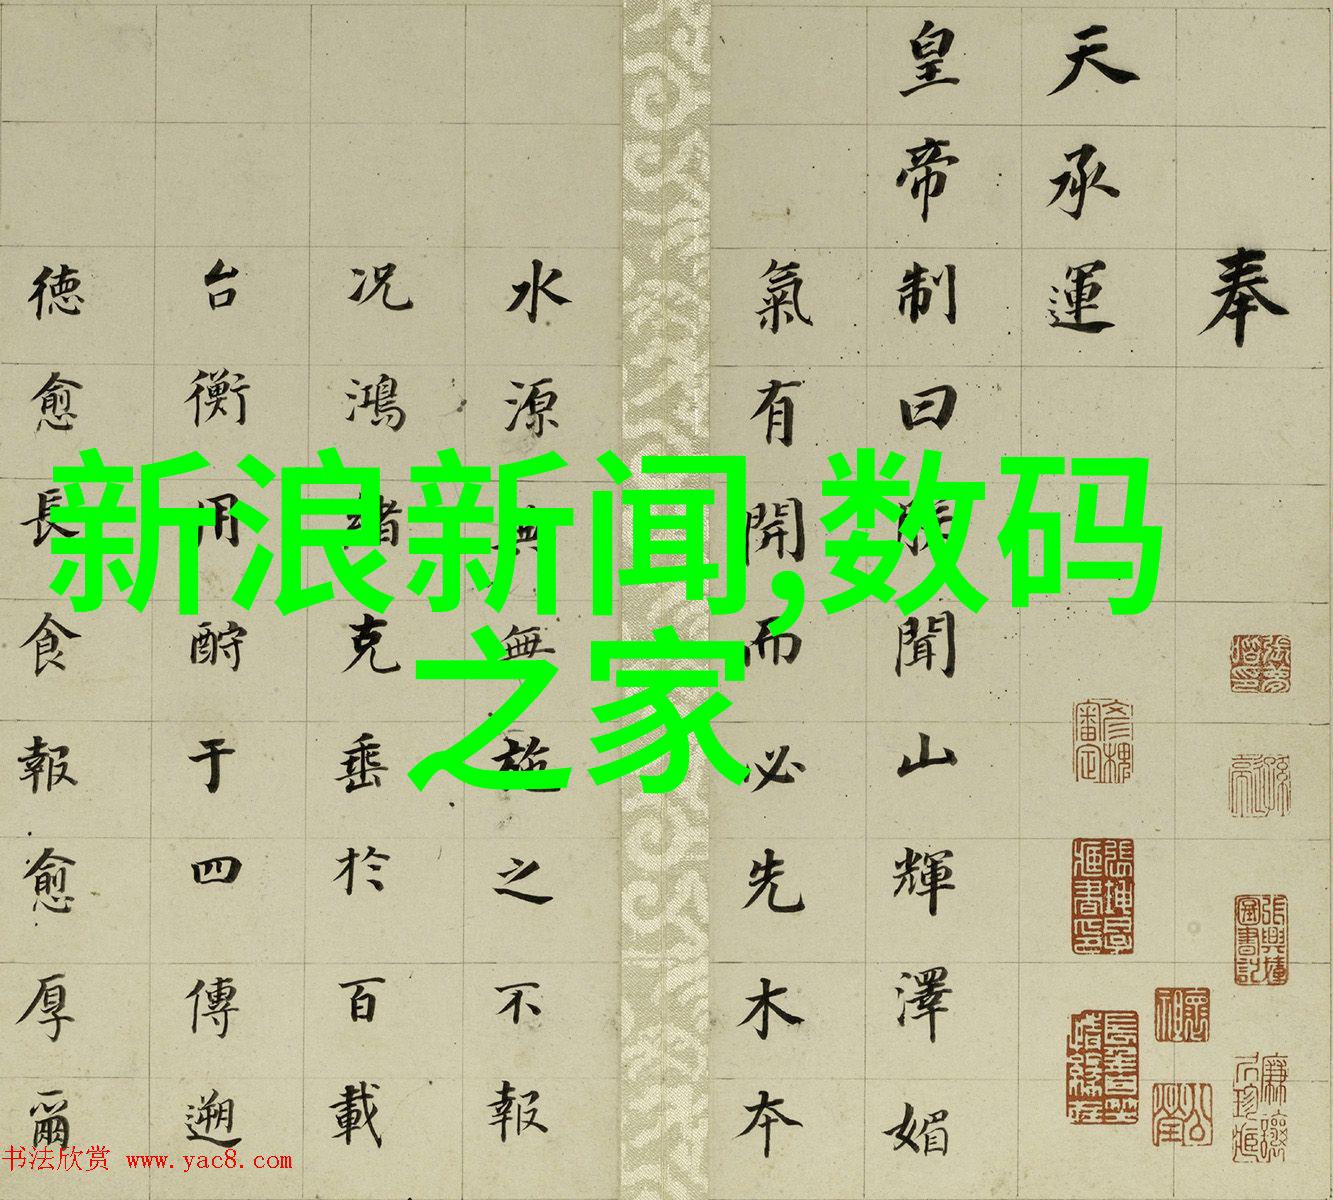 奉
天承運
皇帝制曰朕聞山輝澤媚
氣有開而必先木本
水源無施之不報
况鴻緒克垂於百載
台衡用酧于四傳遡
德愈長食報愈厚爾
新浪新闻,数码
之家
书法欣赏 www.yac8.com